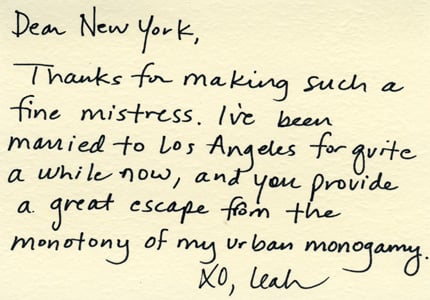 Dear New York,
Thanks for making such a
fine mistress. I've been
married to Los Angeles for quite
a while now, and you provide
a great escape from the
monotony of my urban monogamy.
XO, Leah